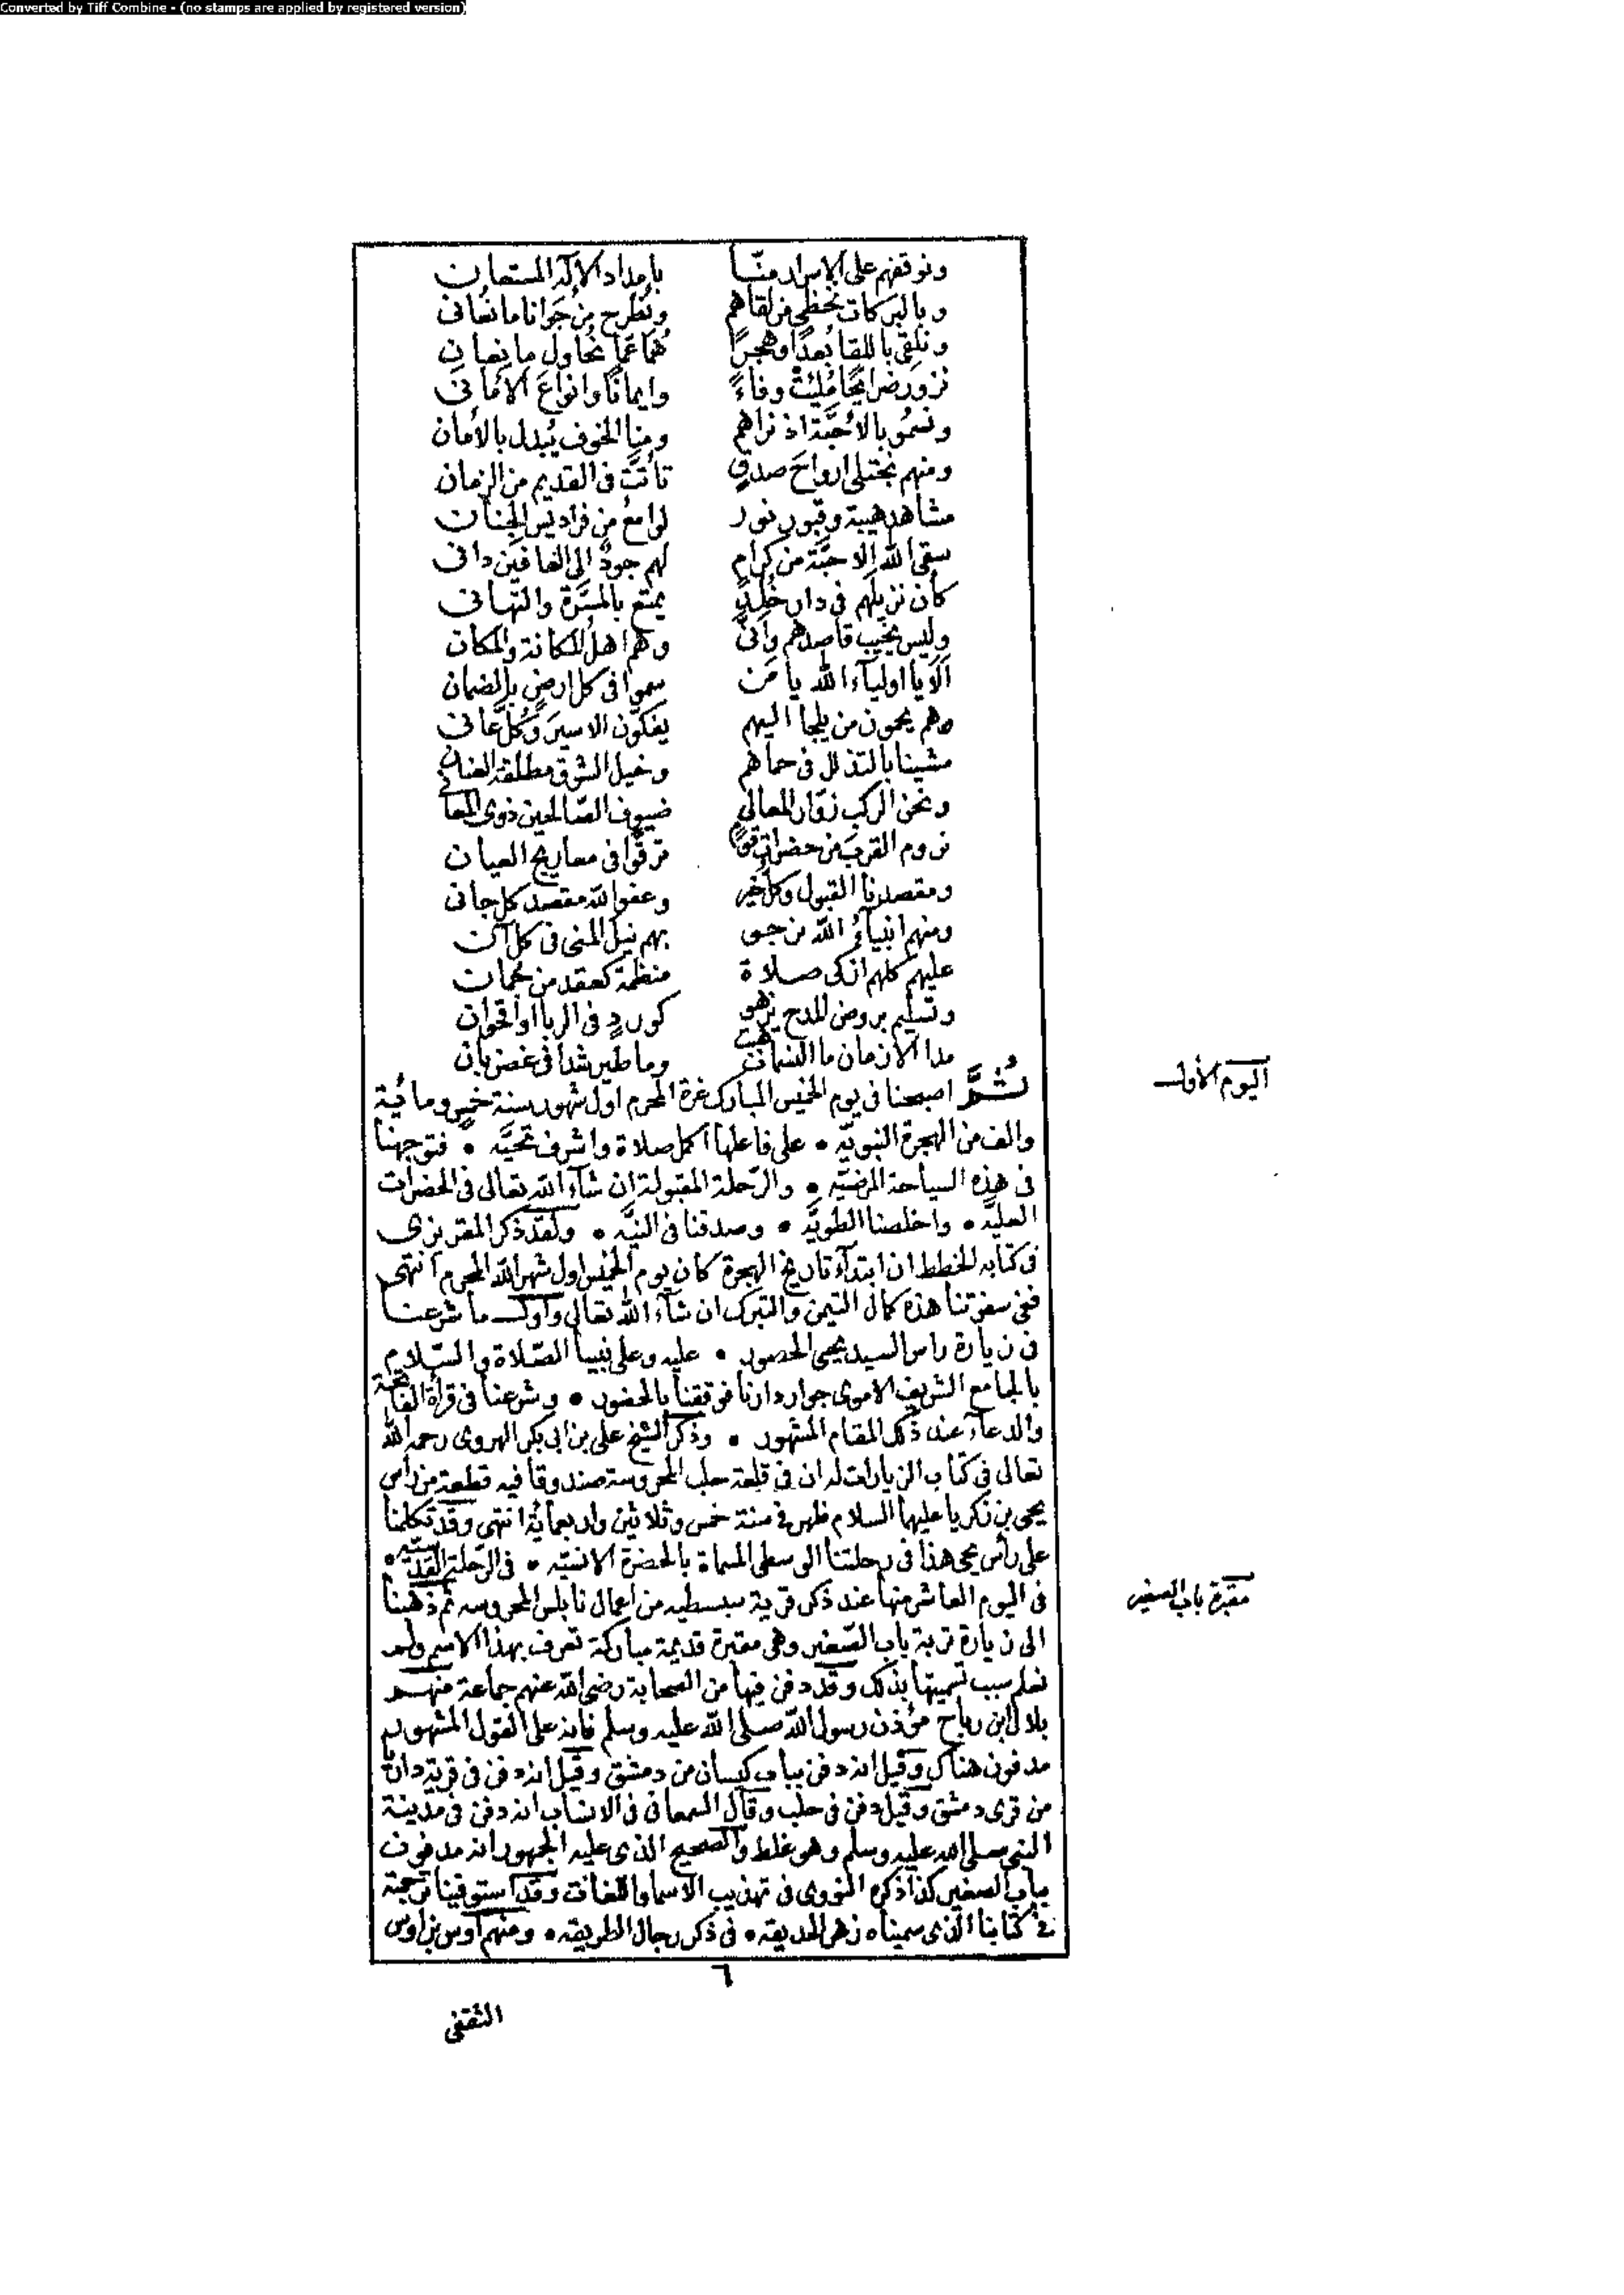 Converted by Tiff Combine - (no stamps are applied by registered version)
ونوقفهم على الاسرار منّا بامداد الالٓه المستعان
وبالبركات نحظى من لقاهم ونطرح من جوانا ما نعانى
ونلقى باللقا بعدًا وهجرًا هما عما نحاول مانعان
نزور ضرايحًا مُلِئتْ وفاءً وايمانًا وانواعَ الامانى
ونسمُو بالاحبَّة اذ نراهم ومنا الخوف يُبدل بالأمان
ومنهم نجتلى ارواحَ صدقٍ تأتَّت فى القديم من الزمان
مشاهد هيبة وقبور نور لوامعُ من فراديس الجنان
سقى الله الاحبَّة من كرام لهم جودٌ الى العافين دانى
كأن نزيلهم فى دار خُلدٍ يمتع بالمسَرَّة والتهانى
وليس يخيب قاصدهم وأنَّى وهم اهلُ المكانة والمكان
ألا يا اولياء الله يا مَن سموا فى كل ارضٍ بالضمان
وهم يحمون من يلجا اليهم يفكّون الاسيرَ وكلَّ عانى
مشينا بالتذلل فى حماهم وخيل الشوق مطلقة العنان
ونحن الركب زوّار المعالى ضيوف الصّالحين ذوى المعانى
نروم القرب من حضرات قومٍ ترقّوا فى معاريج العيان
ومقصدنا القبول وكل خير وعفو الله مقصد كل جانى
ومنهم انبياءُ الله نرجو بهم نيل المنى فى كل آن
عليهم كلهم ازكى صلاة منظمة كعقد من جمان
وتسليم بروض المدح يزهو كوردٍ فى الربا او اقحوان
مدا الازمان ما النسمات هبت وما طير شدا فى غصن بان
ثُمَّ اصبحنا فى يوم الخميس المبارك غرة المحرم اول شهور سنة خمس ومائية
اليوم الأول
والف من الهجرة النبويّه • على فاعلها اكمل صلاة واشرف تحيَّه • فتوجهنا
فى هذه السياحة المرضيَّه • والرّحلة المقبولة ان شآء الله تعالى فى الحضرات
العليَّه • واخلصنا الطويَّه • وصدقنا فى النيَّه • ولقد ذكر المقريزى
فى كتابه الخطط ان ابتدآء تاريخ الهجرة كان يوم الخميس اول شهر الله المحرم انتهى
ففى سفرتنا هذه كمال التيمن والتبرك ان شآء الله تعالى واول ما شرعنا
فى زيارة راس السيد يحيى الحصور • عليه وعلى نبينا الصّلاة والسّلام
بالجامع الشريف الاموى جوار دارنا فوقفنا بالحضور • وشرعنا فى قرأة الفاتحة
والدعآء عند ذلك المقام المشهور • وذكر الشيخ على بن ابى بكر الهروى رحمه الله
تعالى فى كتاب الزيارات له ان فى قلعة حلب المحروسة صندوقا فيه قطعة من رأس
يحيى بن زكريا عليهما السلام ظهر فى سنة خمس وثلاثين واربعمائة انتهى وقد تكلمنا
على رأس يحيى هذا فى رحلتنا الوسطى المسماة بالحضرة الانسيّه • فى الرّحلة القدسيّه •
فى اليوم العاشر منها عند ذكر قرية سبسطيه من اعمال نابلس المحروسه ثم ذهبنا
مقبرة باب الصغير
الى زيارة تربة باب الصّغير وهى مقبرة قديمة مباركة تعرف بهذا الاسم ولم
نعلم سبب تسميتها بذلك وقد دفن فيها من الصحابة رضى الله عنهم جماعة منهم
بلال ابن رباح مؤذن رسول الله صلى الله عليه وسلم فانه على القول المشهور
مدفون هناك وقيل انه دفن بباب كيسان من دمشق وقيل انه دفن فى قرية داريا
من قرى دمشق وقيل دفن فى حلب وقال السمعانى فى الانساب انه دفن فى مدينة
النبى صلى الله عليه وسلم وهو غلط والصحيح الذى عليه الجمهور انه مدفون
بباب الصغير كذا ذكره النووى فى تهذيب الاسما واللغات وقد استوفينا ترجمته
فى كتابنا الذى سميناه زهر الحديقه • فى ذكر رجال الطريقه • ومنهم اوس بن اوس
٦
الثقفى